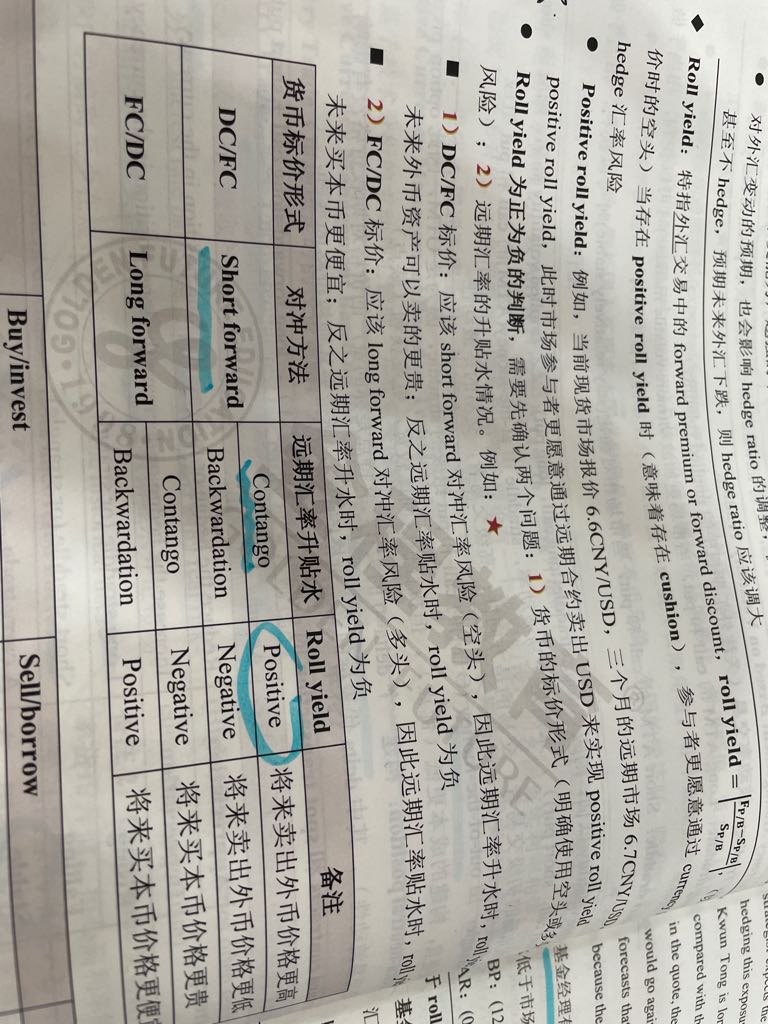 对外汇变动的预期，也会影响 hedge ratio 的调整，
甚至不 hedge，预期未来外汇下跌，则 hedge ratio 应该调大
◆ Roll yield：特指外汇交易中的 forward premium or forward discount，roll yield = |F_P/B−S_P/B / S_P/B|，
价时的空头）当存在 positive roll yield 时（意味着存在 cushion），参与者更愿意通过
hedge 汇率风险
● Positive roll yield：例如，当前现货市场报价 6.6CNY/USD，三个月的远期市场 6.7CNY/USD
positive roll yield，此时市场参与者更愿意通过远期合约卖出 USD 来实现 positive roll yield
● Roll yield 为正为负的判断，需要先确认两个问题：1）货币的标价形式（明确使用空头或
风险）；2）远期汇率的升贴水情况。例如：★
■ 1）DC/FC 标价：应该 short forward 对冲汇率风险（空头），因此远期汇率升水时，
未来外币资产可以卖的更贵；反之远期汇率贴水时，roll yield 为负
■ 2）FC/DC 标价：应该 long forward 对冲汇率风险（多头），因此远期汇率贴水时，
未来买本币更便宜；反之远期汇率升水时，roll yield 为负
货币标价形式 对冲方法 远期汇率升贴水 Roll yield 备注
DC/FC Short forward Contango Positive 将来卖出外币价格更高
Backwardation Negative 将来卖出外币价格更低
FC/DC Long forward Contango Negative 将来买本币价格更贵
Backwardation Positive 将来买本币价格更便宜
Buy/invest Sell/borrow
hedging this
Kwun Tong is
compared with
in the quote, the
would go
forecasts
because the
基金经理
低于市场
BP：(12